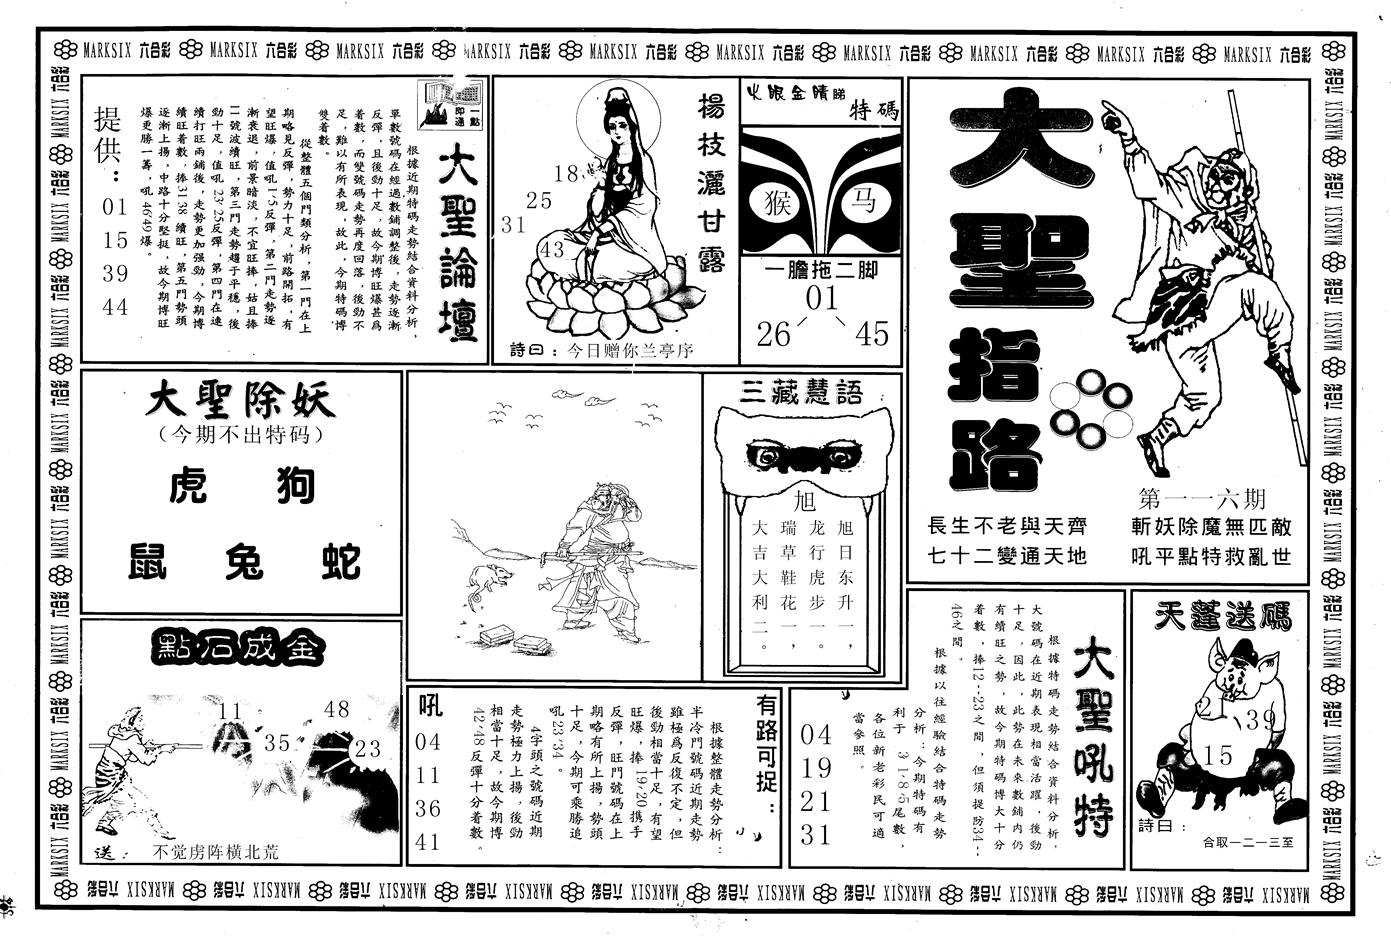 MARKSIX 六合彩 MARKSIX 六合彩 MARKSIX 六合彩 MARKSIX 六合彩 MARKSIX 六合彩 MARKSIX 六合彩 MARKSIX 六合彩 MARKSIX 六合彩 MARKSIX 六合彩 MARKSIX 六合彩
大聖指路
第一一六期
長生不老與天齊
七十二變通天地
斬妖除魔無匹敵
吼平點特救亂世
火眼金睛睇
特碼
猴
马
一膽拖二脚
01
26
45
楊枝灑甘露
18
25
31
43
詩曰：今日赠你兰亭序
一點即通
大聖論壇
根據近期特碼走勢結合資料分析，
單數號碼在經過數鋪調整後，走勢逐漸
反彈，且後勁十足，故今期博旺爆甚爲
着數，而雙號碼走勢再度回落，後勁不
足，難以有所表現，故此，今期特碼博
雙着數。
從整體五個門類分析，第一門在上
期略見反彈，勢力十足，前路開拓，有
望旺爆，值吼1·5反彈，第二門走勢逐
漸衰退，前景暗淡，不宜旺捧，姑且捧
11號波續旺，第三門走勢趨于平穩，後
勁十足，值吼23·25反彈，第四門在連
續打旺兩鋪後，走勢更加强勁，今期博
續旺着數，捧31·38續旺，第五門勢頭
逐漸上揚，中路十分堅挺，故今期博旺
爆更勝一籌，吼46·49爆。
提供：
01
15
39
44
大聖除妖
（今期不出特码）
虎 狗
鼠 兔 蛇
三藏慧語
旭
旭日东升一，
龙行虎步一。
瑞草鞋花一，
大吉大利二。
點石成金
11
48
35
23
送：不觉虏阵横北荒
有路可捉：
根據整體走勢分析：
半冷門號碼近期走勢
雖極爲反復不定，但
後勁相當十足，有望
旺爆，捧19·20携手
反彈，旺門號碼在上
期略有所上揚，勢頭
十足，今期可乘勝追
吼23·34。
4字頭之號碼近期
走勢極力上揚，後勁
相當十足，故今期博
42·48反彈十分着數。
吼
04
11
36
41
大聖吼特
根據特碼走勢結合資料分析，
大號碼在近期表現相當活躍，後勁
十足，因此，此勢在未來數鋪内仍
有續旺之勢，故今期特碼博大十分
着數，捧12--23之間，但須提防34--
46之間。
根據以往經驗結合特碼走勢
分析：今期特碼有
利于 3·1·8·5尾數，
各位新老彩民可適
當參照。
04
19
21
31
天蓬送碼
2
39
15
詩曰：
合取一二一三至